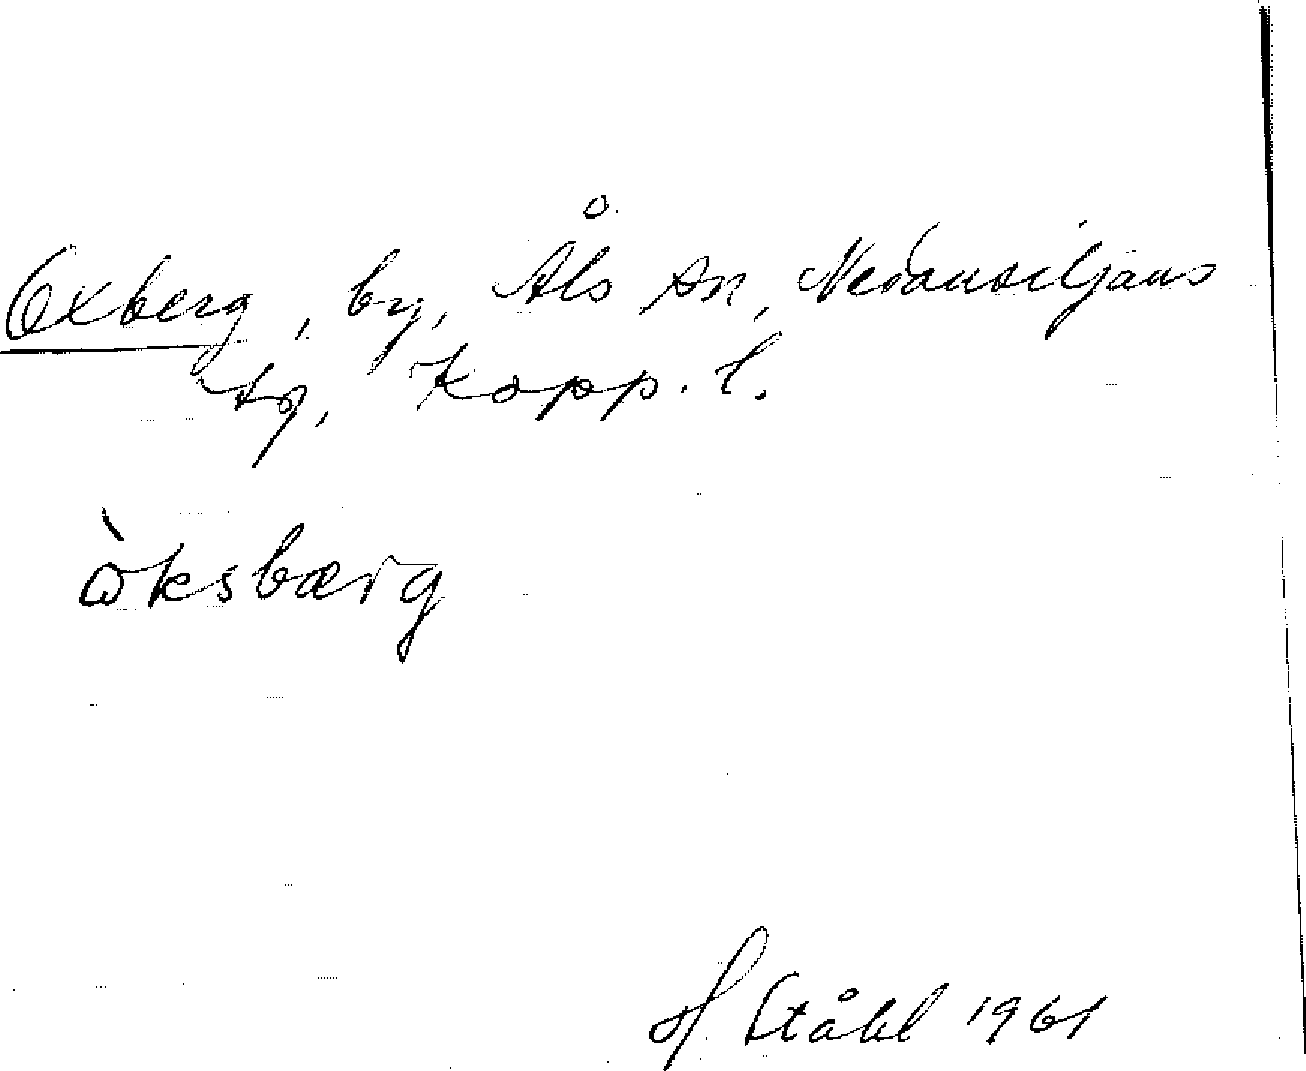 Oxberg, by, Åls sn, Nedansiljans
tg, Kopp. l.
ὼksbærg
H Ståhl 1961